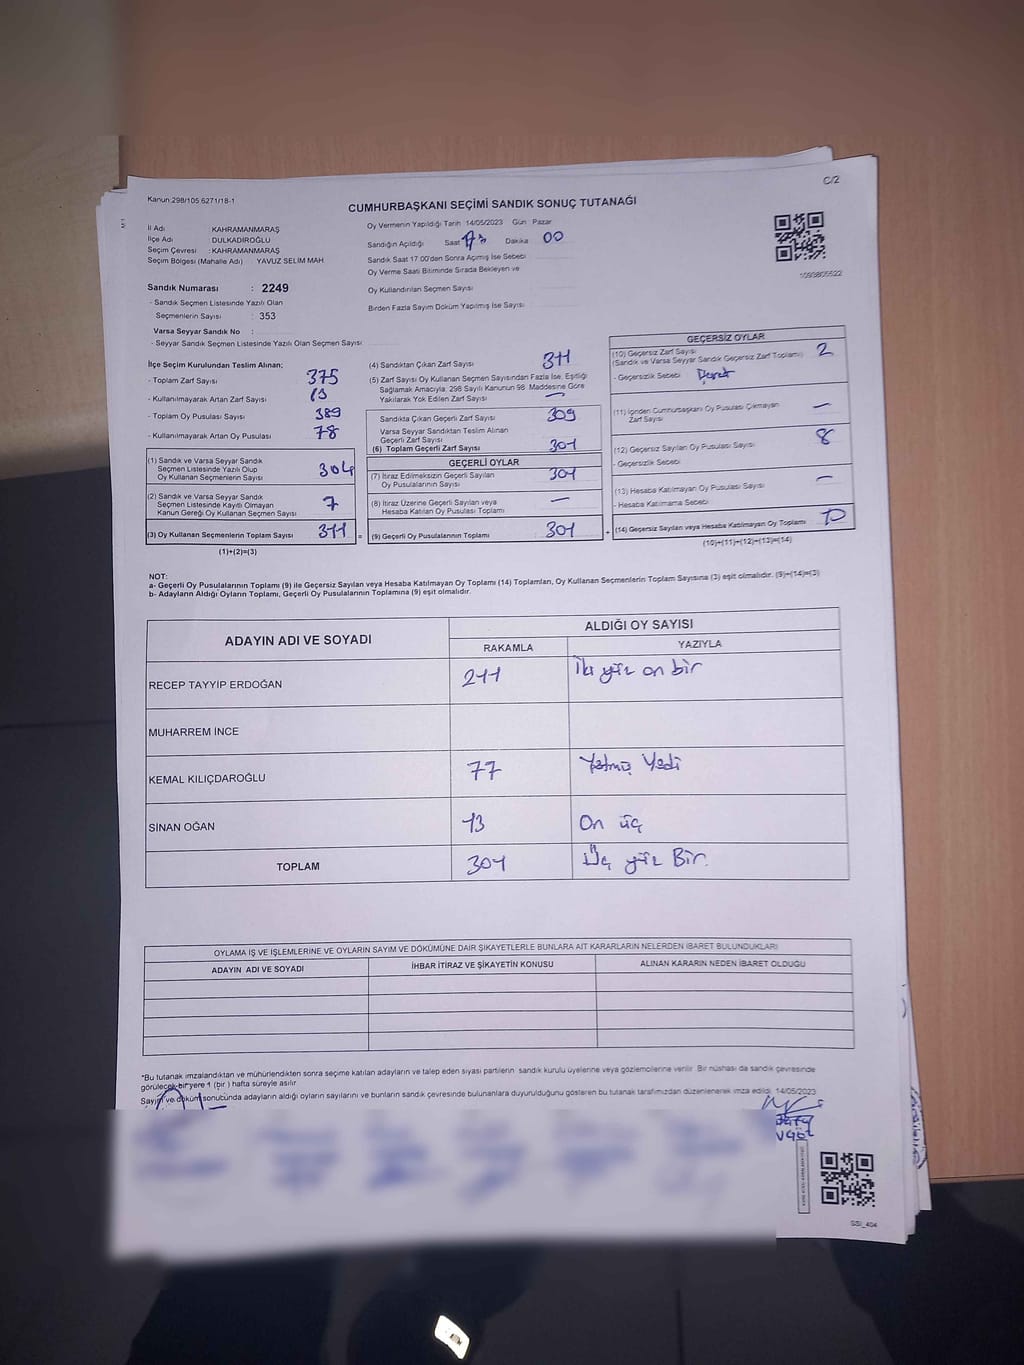 C/2
Kanun:298/105 6271/18-1
CUMHURBAŞKANI SEÇİMİ SANDIK SONUÇ TUTANAĞI
İl Adı KAHRAMANMARAŞ
İlçe Adı DULKADİROĞLU
Seçim Çevresi : KAHRAMANMARAŞ
Seçim Bölgesi (Mahalle Adı) YAVUZ SELİM MAH
Sandık Numarası : 2249
- Sandık Seçmen Listesinde Yazılı Olan
Seçmenlerin Sayısı : 353
Varsa Seyyar Sandık No :
- Seyyar Sandık Seçmen Listesinde Yazılı Olan Seçmen Sayısı
Oy Vermenin Yapıldığı Tarih 14/05/2023 Gün Pazar
Sandığın Açıldığı Saat Dakika 00
Sandık Saat 17:00'den Sonra Açımış İse Sebebi
Oy Verme Saati Bitiminde Sırada Bekleyen ve
Oy Kullandırılan Seçmen Sayısı
Birden Fazla Sayım Döküm Yapılmış İse Sayısı
1093805522
İlçe Seçim Kurulundan Teslim Alınan;
- Toplam Zarf Sayısı 375
- Kullanılmayarak Artan Zarf Sayısı
- Toplam Oy Pusulası Sayısı 389
- Kullanılmayarak Artan Oy Pusulası 78
(1) Sandık ve Varsa Seyyar Sandık
Seçmen Listesinde Yazılı Olup
Oy Kullanan Seçmenlerin Sayısı 304
(2) Sandık ve Varsa Seyyar Sandık
Seçmen Listesinde Kayıtlı Olmayan
Kanun Gereği Oy Kullanan Seçmen Sayısı 7
(3) Oy Kullanan Seçmenlerin Toplam Sayısı 311 =
(1)+(2)=(3)
(4) Sandıktan Çıkan Zarf Sayısı 311
(5) Zarf Sayısı Oy Kullanan Seçmen Sayısından Fazla İse, Eşitliği
Sağlamak Amacıyla; 298 Sayılı Kanunun 98. Maddesine Göre
Yakılarak Yok Edilen Zarf Sayısı —
Sandıkta Çıkan Geçerli Zarf Sayısı 309
Varsa Seyyar Sandıktan Teslim Alınan
Geçerli Zarf Sayısı
(6) Toplam Geçerli Zarf Sayısı 301
GEÇERLİ OYLAR
(7) İtiraz Edilmeksizin Geçerli Sayılan
Oy Pusulalarının Sayısı 301
(8) İtiraz Üzerine Geçerli Sayılan veya
Hesaba Katılan Oy Pusulası Toplamı —
(9) Geçerli Oy Pusulalarının Toplamı 301 +
GEÇERSİZ OYLAR
(10) Geçersiz Zarf Sayısı 2
(Sandık ve Varsa Seyyar Sandık Geçersiz Zarf Toplamı)
- Geçersizlik Sebebi
(11) İçinden Cumhurbaşkanı Oy Pusulası Çıkmayan
Zarf Sayısı —
(12) Geçersiz Sayılan Oy Pusulası Sayısı 8
- Geçersizlik Sebebi
(13) Hesaba Katılmayan Oy Pusulası Sayısı —
- Hesaba Katılmama Sebebi
(14) Geçersiz Sayılan veya Hesaba Katılmayan Oy Toplamı 10
(10)+(11)+(12)+(13)=(14)
NOT:
a- Geçerli Oy Pusulalarının Toplamı (9) ile Geçersiz Sayılan veya Hesaba Katılmayan Oy Toplamı (14) Toplamları, Oy Kullanan Seçmenlerin Toplam Sayısına (3) eşit olmalıdır. (9)+(14)=(3)
b- Adayların Aldığı Oyların Toplamı, Geçerli Oy Pusulalarının Toplamına (9) eşit olmalıdır.
ADAYIN ADI VE SOYADI ALDIĞI OY SAYISI
RAKAMLA YAZIYLA
RECEP TAYYİP ERDOĞAN 211 İki yüz on bir
MUHARREM İNCE
KEMAL KILIÇDAROĞLU 77 Yetmiş Yedi
SİNAN OĞAN 13 On üç
TOPLAM 301 Üç yüz Bir.
OYLAMA İŞ VE İŞLEMLERİNE VE OYLARIN SAYIM VE DÖKÜMÜNE DAİR ŞİKAYETLERLE BUNLARA AİT KARARLARIN NELERDEN İBARET BULUNDUKLARI
ADAYIN ADI VE SOYADI İHBAR İTİRAZ VE ŞİKAYETİN KONUSU ALINAN KARARIN NEDEN İBARET OLDUĞU
*Bu tutanak imzalandıktan ve mühürlendikten sonra seçime katılan adayların ve talep eden siyasi partilerin sandık kurulu üyelerine veya gözlemcilerine verilir. Bir nüshası da sandık çevresinde
görülecek bir yere 1 (bir ) hafta süreyle asılır
Sayım ve döküm sonucunda adayların aldığı oyların sayılarını ve bunların sandık çevresinde bulunanlara duyurulduğunu gösteren bu tutanak tarafımızdan düzenlenerek imza edildi. 14/05/2023
SSİ_404